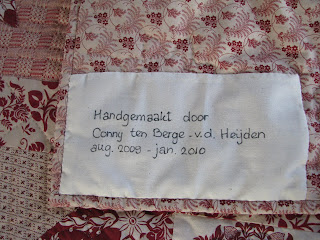 Handgemaakt door
Conny ten Berge - v.d. Heijden
aug. 2009 - jan. 2010